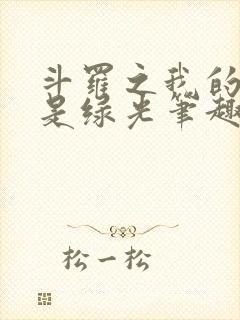 斗罗之我的
是绿光笔趣
松一松